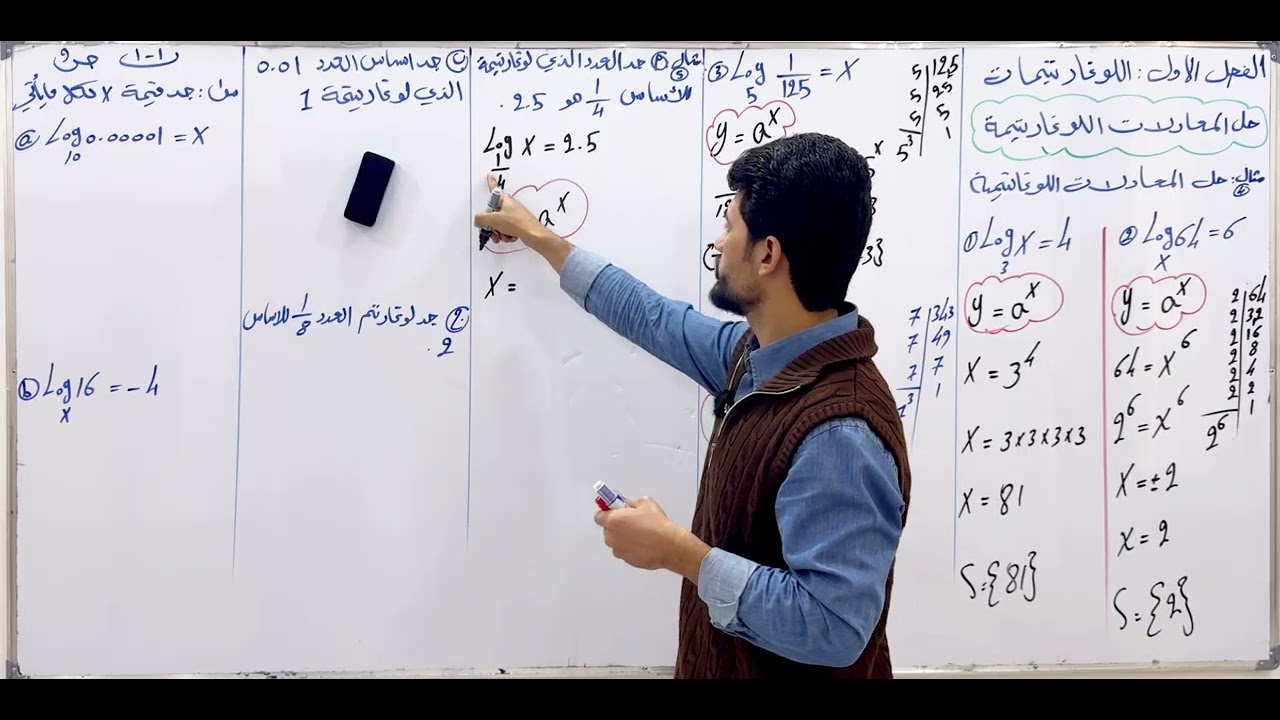 الفصل الاول: اللوغاريتمات
حل المعادلات اللوغاريتمية
مثال: حل المعادلات اللوغاريتمية
④
① Log₃ X = 4
y = a^x
X = 3^4
X = 3×3×3×3
X = 81
S = {81}
② Log_x 64 = 6
y = a^x
64 = x^6
2^6 = x^6
X = ±2
X = 2
S = {2}
2 | 64
2 | 32
2 | 16
2 | 8
2 | 4
2 | 2
2^6 | 1
③ Log₅ 1/125 = X
y = a^x
5 | 125
5 | 25
5 | 5
5^3 | 1
7 | 343
7 | 49
7 | 7
1
مثال ⑤ جد العدد الذي لوغاريتمة
للأساس 1/4 هو 2.5 .
Log_1/4 X = 2.5
a^x
X =
جد اساس العدد 0.01
الذي لوغاريتمة 1
جد لوغاريتم العدد 1/8 للاساس
2 .
ت ١-١
جد قيمة X لكل مايأتي
ⓐ Log₁₀ 0.00001 = X
ⓑ Log_x 16 = -4